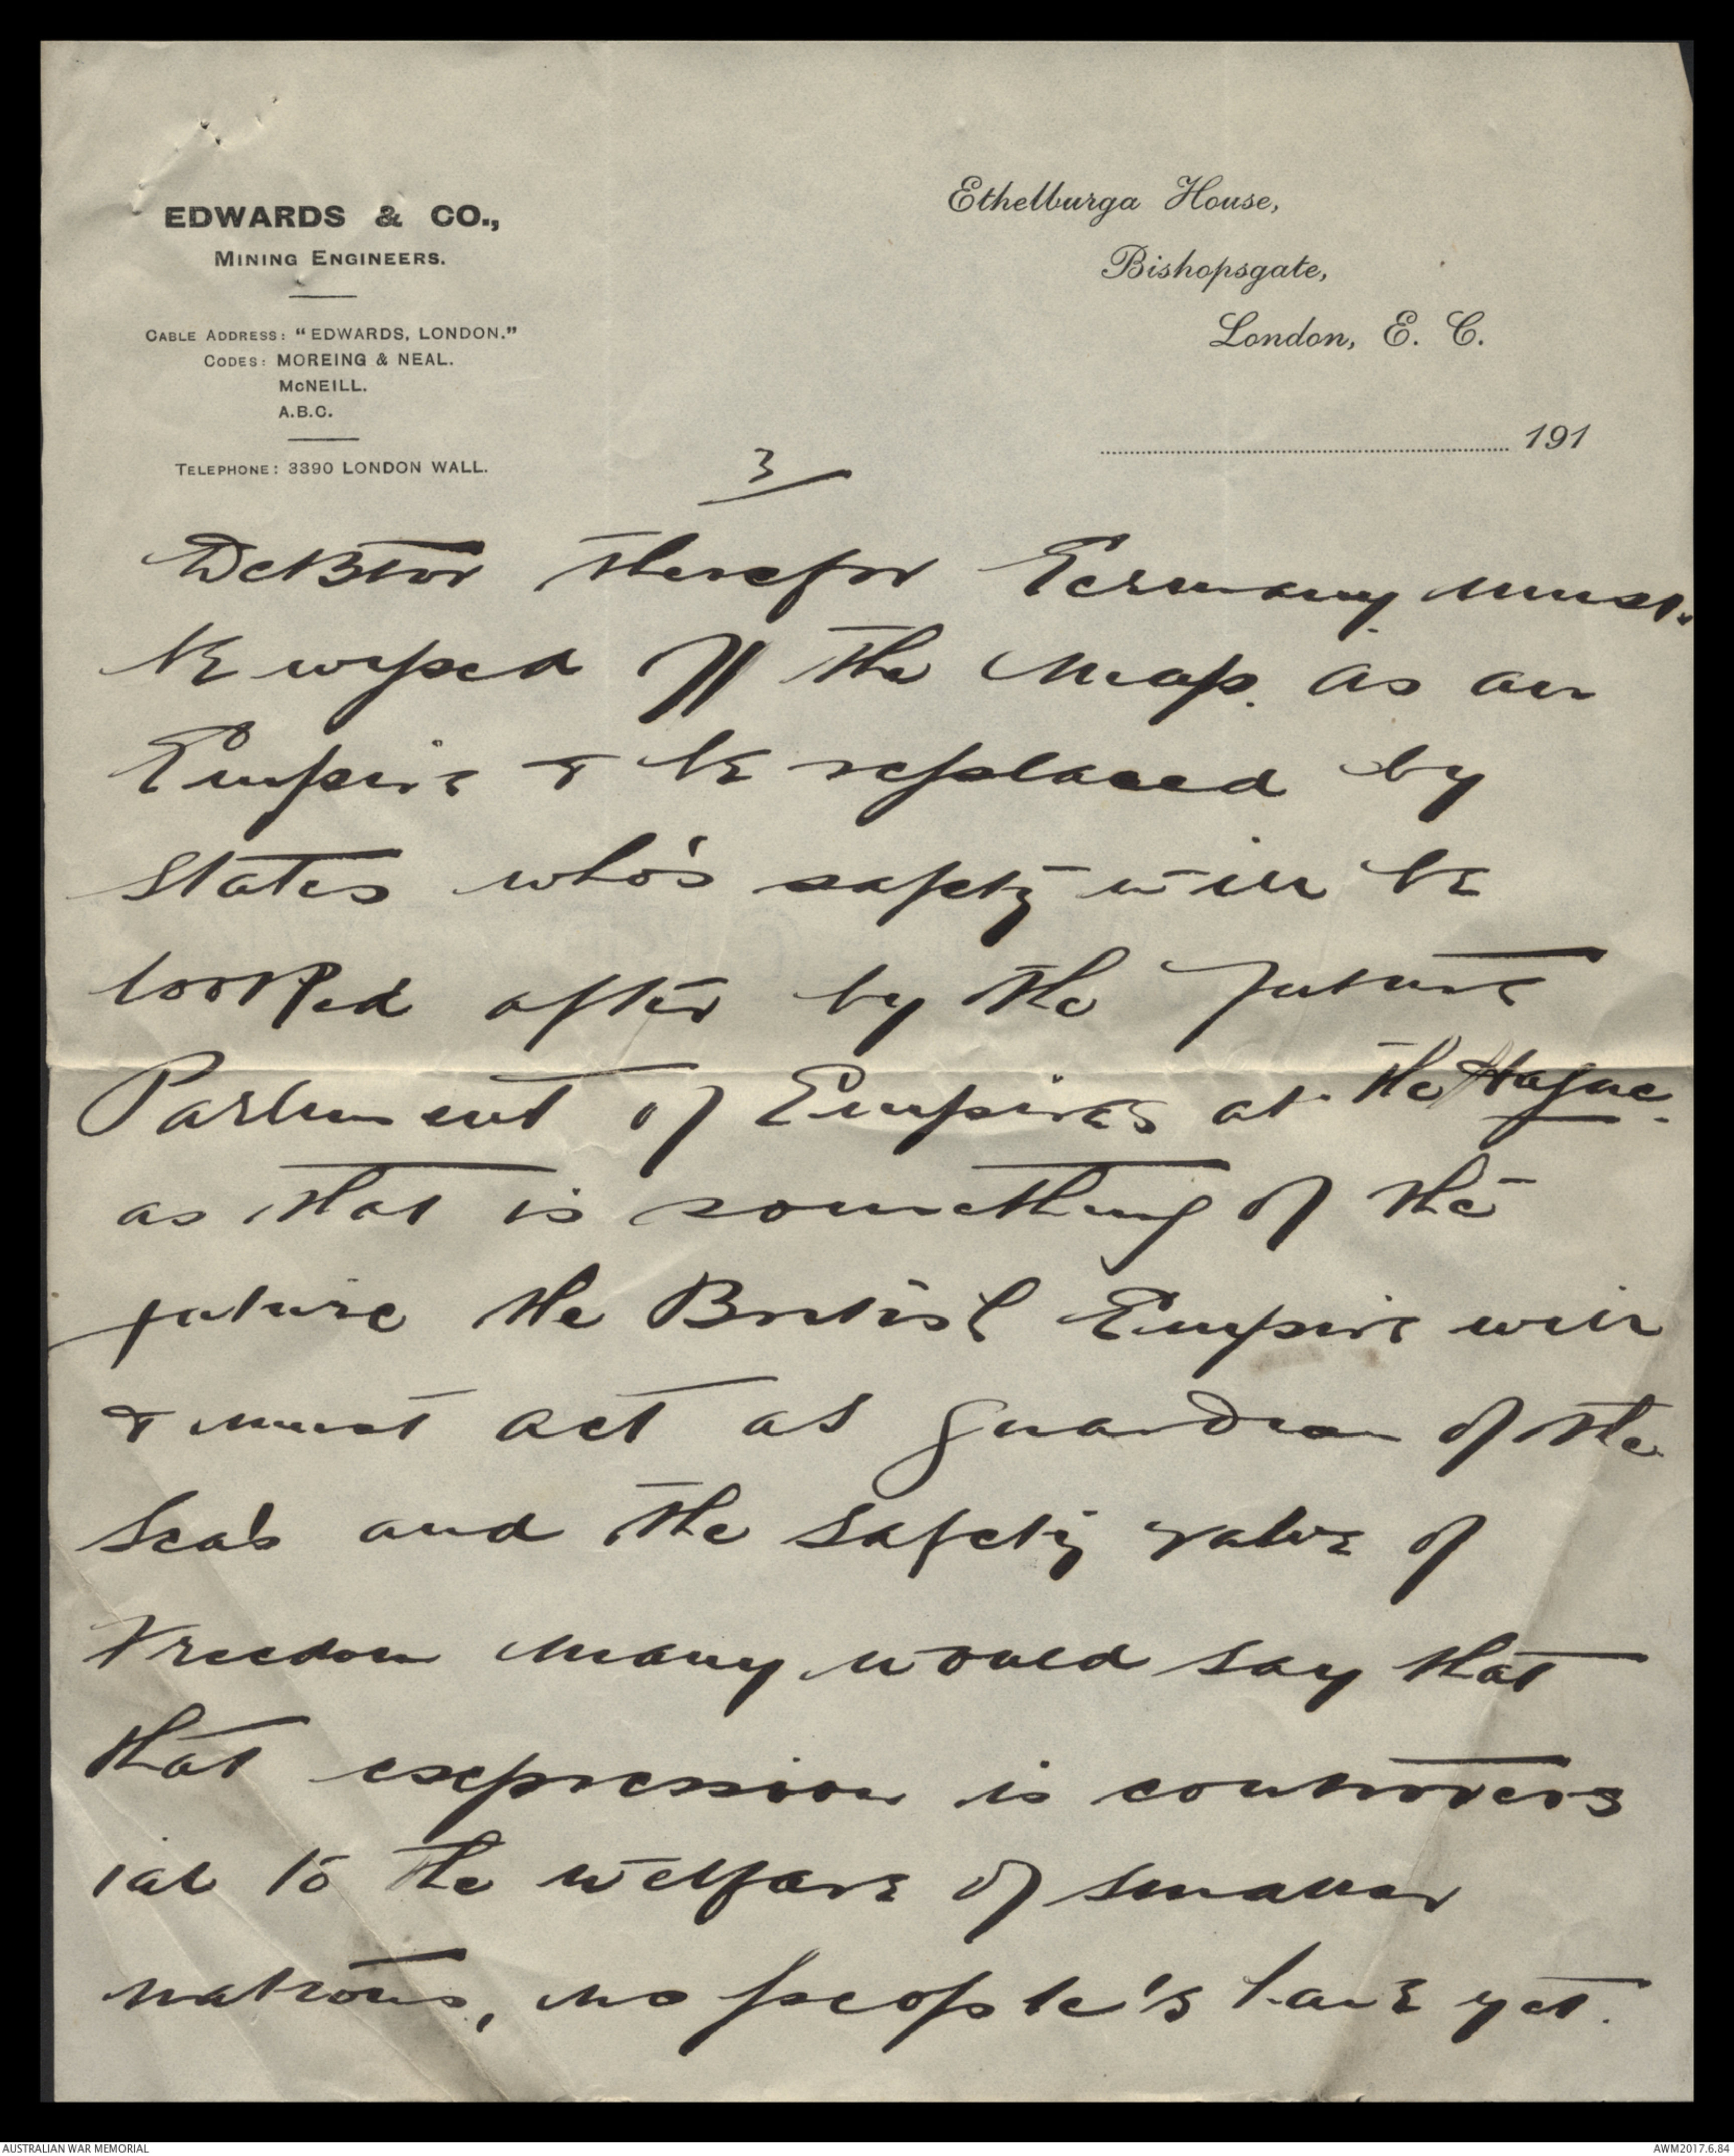 EDWARDS & CO.,
MINING ENGINEERS.
CABLE ADDRESS: "EDWARDS, LONDON."
CODES: MOREING & NEAL.
McNEILL.
A.B.C.
TELEPHONE: 3390 LONDON WALL.
Ethelburga House,
Bishopsgate,
London, E. C.
191
3
therefor Germany must
be wiped off the Map. as an
Empire & be replaced by
states who's safety will be
looked after by the future
Parliment of Empires at the Hague.
as that is something of the
future the British Empire will
& must act as guardian of the
Sea's and the safety valve of
Freedom many would say that
that expression is controvers
ial to the welfare of smaller
nations, no people's have yet.
AUSTRALIAN WAR MEMORIAL
AWM2017.6.84